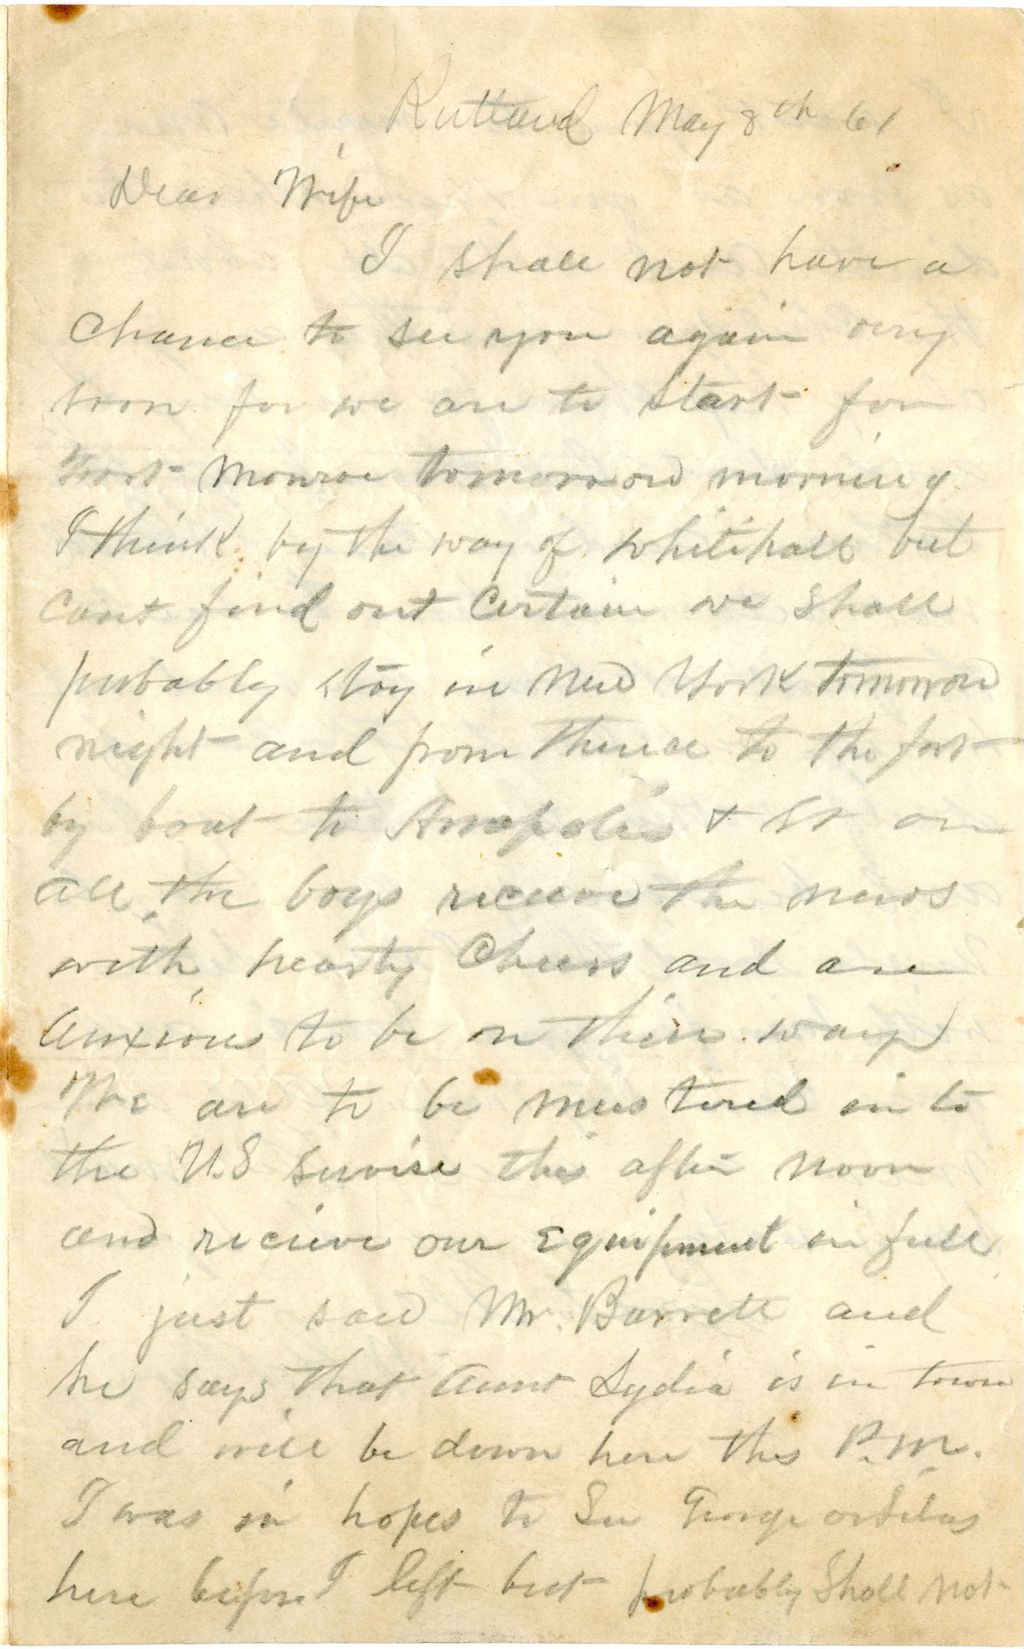 Rutland May 8th 61
Dear Wife
I shall not have a
chance to see you again very
soon for we are to start for
Fort Monroe tomorrow morning.
I think by the way of Whitehall but
cant find out certain we shall
probably stay in New York tomorrow
night and from thence to the fort
by boat to Annapolis &
all the boys recieve the news
with hearty Cheers and are
anxious to be on thier way
We are to be mustered in to
the U.S servise this after noon
and recieve our Equipment in full
I just saw Mr. Barrett and
he says that Aunt Lydia is in town
and will be down here this P.M.
I was in hopes to See George or Silas
here before I left but probably Shall not